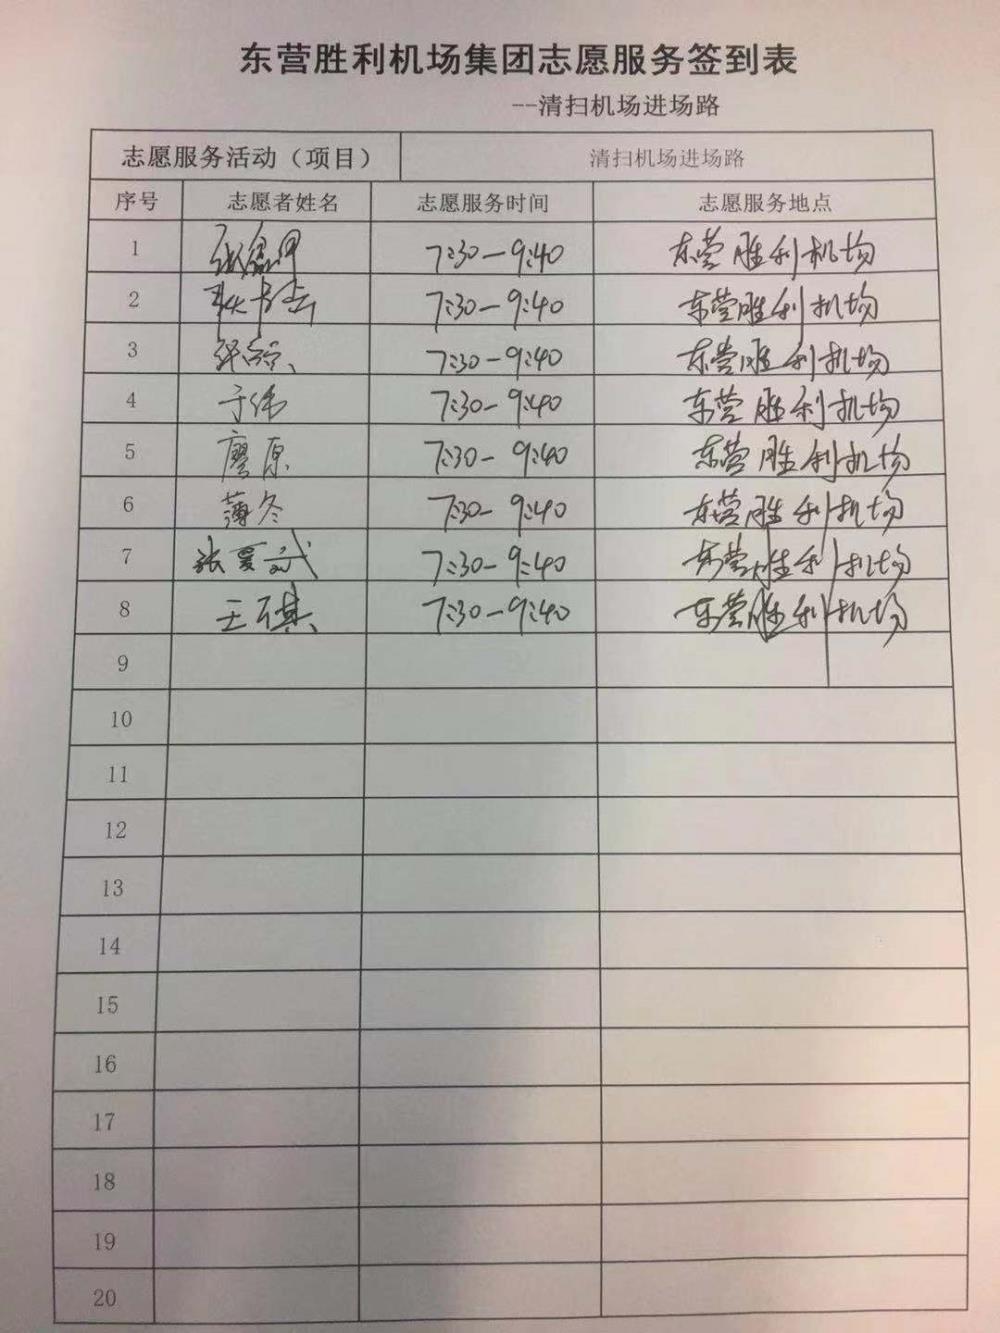 东营胜利机场集团志愿服务签到表
--清扫机场进场路
志愿服务活动（项目） 清扫机场进场路
序号 志愿者姓名 志愿服务时间 志愿服务地点
1 7:30—9:40 东营胜利机场
2 7:30—9:40 东营胜利机场
3 7:30—9:40 东营胜利机场
4 于伟 7:30—9:40 东营胜利机场
5 廖原 7:30—9:40 东营胜利机场
6 薄冬 7:30—9:40 东营胜利机场
7 张夏斌 7:30—9:40 东营胜利机场
8 7:30—9:40 东营胜利机场
9
10
11
12
13
14
15
16
17
18
19
20